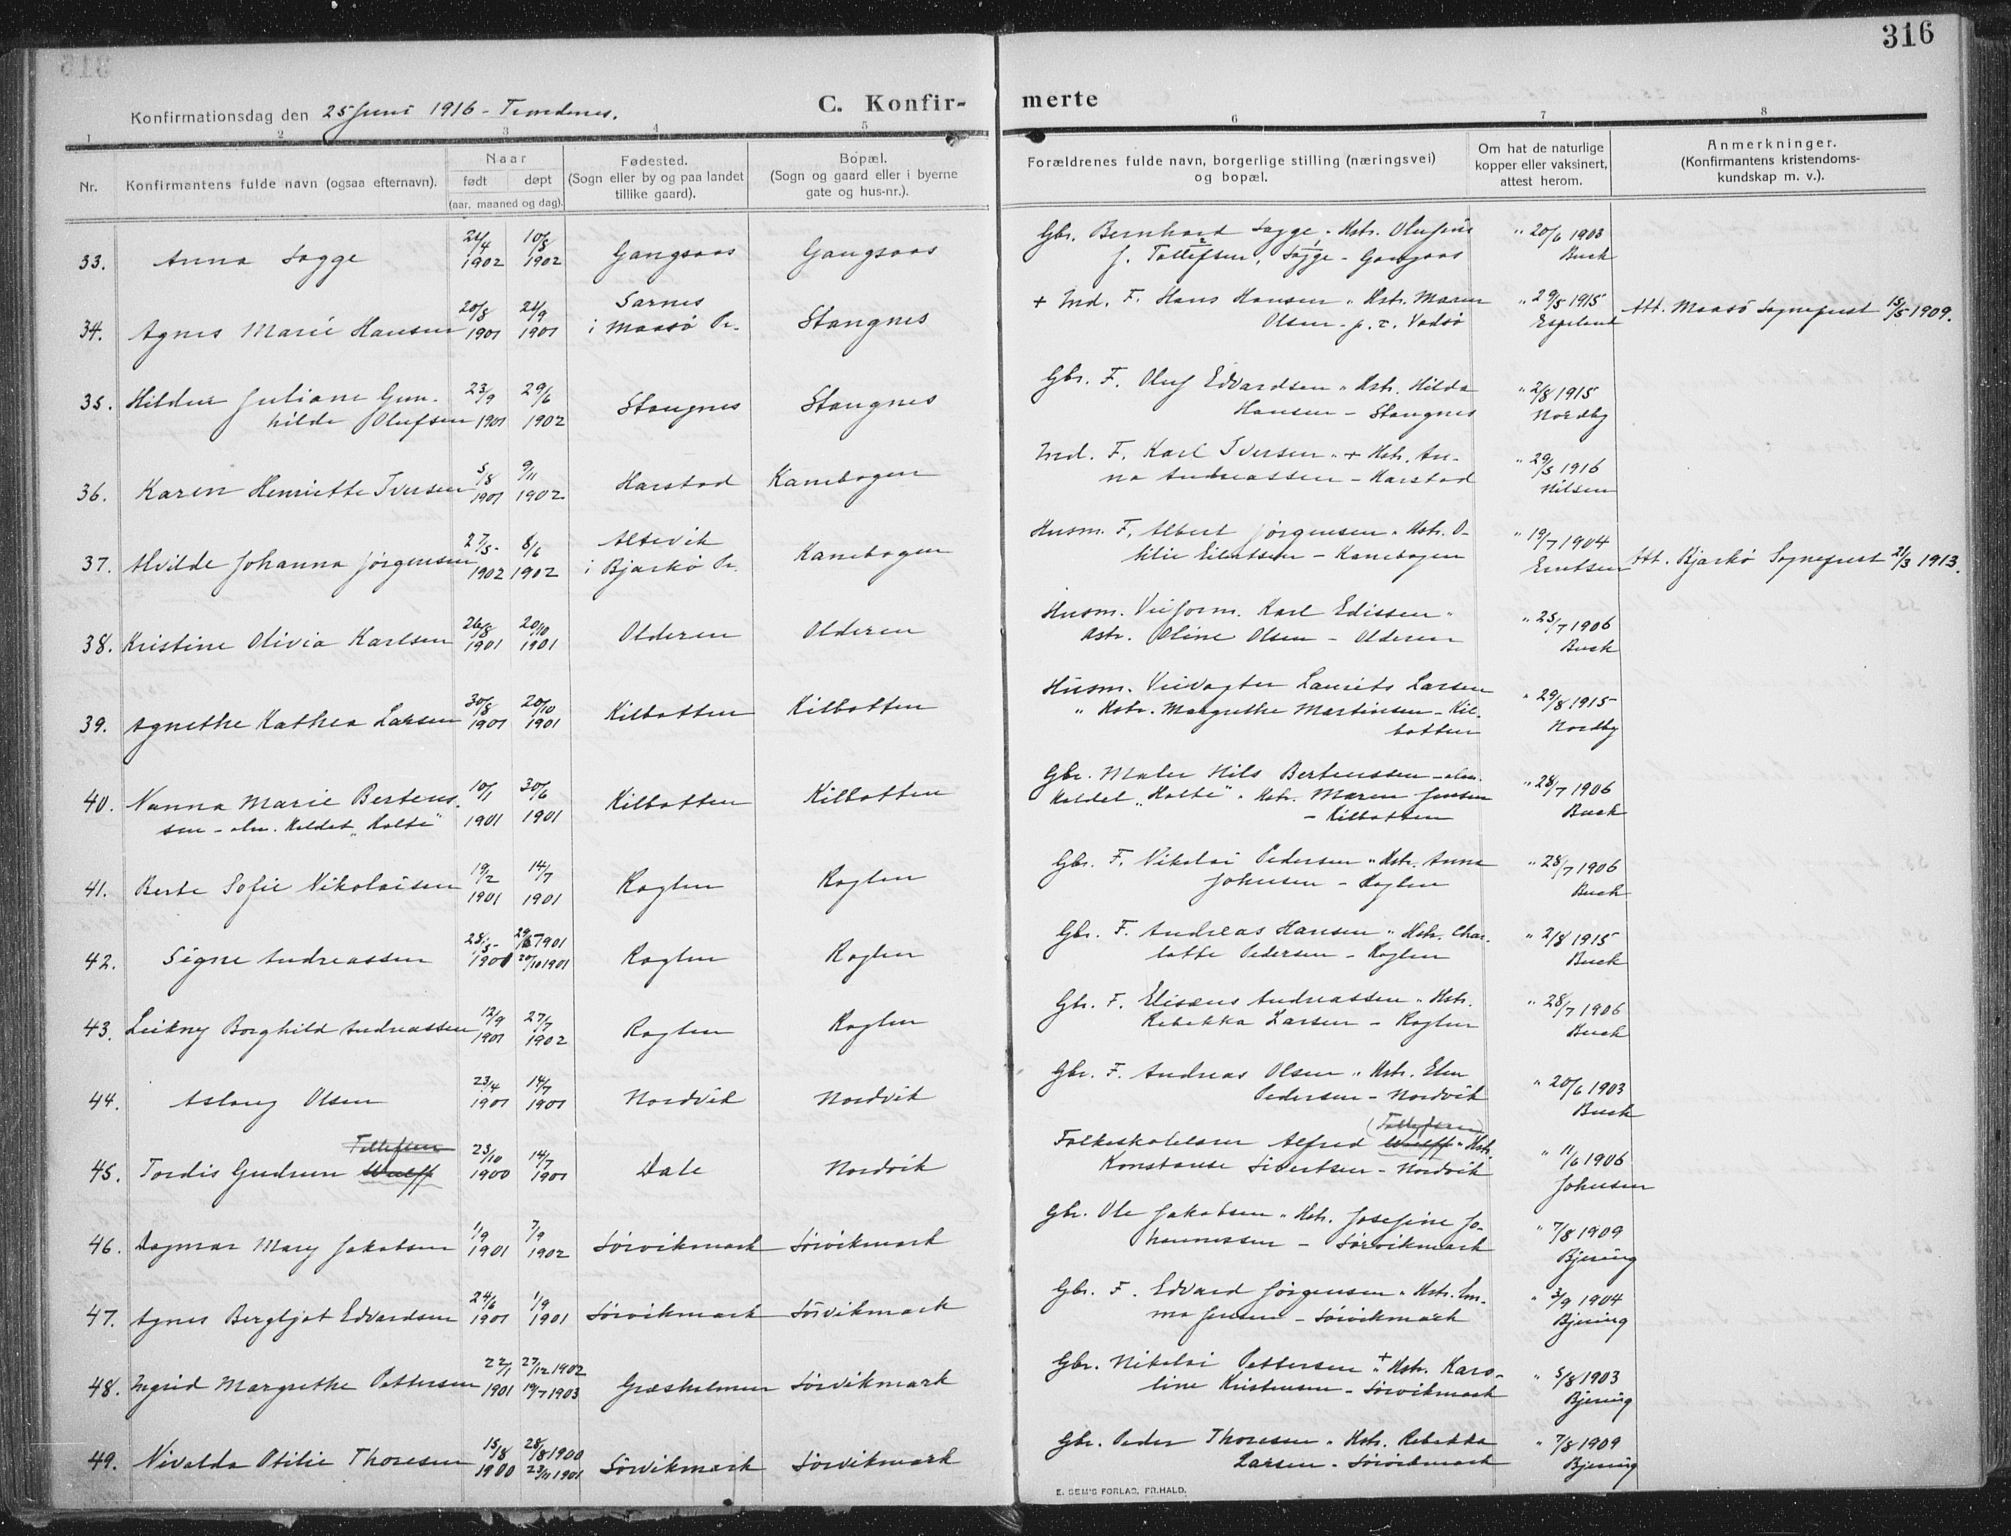 316
Konfirmationsdag den 25 Juni 1916 - Trondenes.
C. Konfir-
merte
1 2 3 4 5 6 7 8
Nr.
Konfirmantens fulde navn (ogsaa efternavn).
Naar
født døpt
(aar, maaned og dag).
Fødested.
(Sogn eller by og paa landet
tillike gaard).
Bopæl.
(Sogn og gaard eller i byerne
gate og hus-nr.).
Forældrenes fulde navn, borgerlige stilling (næringsvei)
og bopæl.
Om hat de naturlige
kopper eller vaksinert,
attest herom.
Anmerkninger.
(Konfirmantens kristendoms-
kundskap m. v.).
33. Anna Sogge 1902 10/8 1902 Gangsaas Gangsaas
Gbr. Bernhard Sogge " Hstr. Olufine
J. Tollefsen, Sogge - Gangsaas
" 20/6 1903
Buck
34. Agnes Marie Hansen 20/8 1901 21/9 1901
Sarnes
i Maasø Pr.
Stangnes
+ Ind. F. Hans Hansen " Hstr. Maren
Olsen - p. t. Vadsø
" 29/5 1915
Espelund
Att. Maasø Sogneprest 15/5 1909.
35. Hildur Juliane Gun-
hilde Olufsen
23/9 1901 29/6 1902 Stangnes Stangnes
Gbr. F. Oluf Edvardsen " Hstr. Hilda
Hansen - Stangnes
" 2/8 1915
Nordby
36. Karen Henriette Iversen 5/8 1901 9/11 1902 Harstad Kanebogen
Ind. F. Karl Iversen " + Hstr. An-
na Andreassen - Harstad
" 29/5 1916
Nilsen
37. Alvilde Johanna Jørgensen 27/5 1902 8/6 1902
Altevik
i Bjarkø Pr.
Kanebogen
Husm. F. Albert Jørgensen " Hstr. O-
tilie Eilertsen - Kanebogen
" 19/7 1904
Att. Bjarkø Sogneprest 21/3 1913.
38. Kristine Olivia Karlsen 26/8 1901 20/10 1901 Olderen Olderen
Husm. Veiform. Karl Edissen "
Hstr. Oline Olsen - Olderen
" 25/7 1906
Buck
39. Agnethe Kathea Larsen 30/8 1901 20/10 1901 Kilbotten Kilbotten
Husm. Veivogter Laurits Larsen
" Hstr. Margrethe Martinsen - Kil-
botten
" 29/8 1915
Nordby
40. Nanna Marie Bertens-
sen - alm. kaldet "Holte"
10/1 1901 30/6 1901 Kilbotten Kilbotten
Gbr. Maler Nils Bertenssen - alm.
kaldet "Holte" " Hstr. Maren Jensen
- Kilbotten
" 28/7 1906
Buck
41. Berte Sofie Nikolaisen 19/2 1901 14/7 1901 Roglen Roglen
Gbr. F. Nikolai Pedersen " Hstr. Anna
Johnsen - Roglen
" 28/7 1906
Buck
42. Signe Andreassen 28/5 1901 20/10 1901 Roglen Roglen
Gbr. F. Andreas Hansen " Hstr. Char-
lotte Pedersen - Roglen
" 2/8 1915
Buck
43. Leikny Borghild Andreassen 12/9 1901 27/7 1902 Roglen Roglen
Gbr. F. Elisæus Andreassen " Hstr.
Rebekka Larsen - Roglen
" 28/7 1906
Buck
44. Aslaug Olsen 23/4 1901 14/7 1901 Nordvik Nordvik
Gbr. F. Andreas Olsen " Hstr. Elen
Pedersen - Nordvik
" 20/6 1903
Buck
45. Tollefsen
Tordis Gudrun Wulff 23/10 1900 14/7 1901 Dale Nordvik
(Tollefsen)
Folkeskolelærer Alfred Wulff " Hstr.
Konstanse Sivertsen - Nordvik
" 11/6 1906
Johnsen
46. Dagmar Mary Jakobsen 1/9 1901 7/9 1902 Sørvikmark Sørvikmark
Gbr. Ole Jakobsen " Hstr. Josefine Jo-
hannessen - Sørvikmark
" 7/8 1909
Bjering
47. Agnes Bergljot Edvardsen 24/6 1901 1/9 1901 Sørvikmark Sørvikmark
Gbr. F. Edvard Jørgensen " Hstr. Em-
ma Jensen - Sørvikmark
" 3/9 1904
Bjering
48. Ingrid Margrethe Pettersen 22/1 1901 27/12 1902 19/7 1903 Græsholmen Sørvikmark
Gbr. Nikolai Pettersen " + Hstr. Karo-
line Kristensen - Sørvikmark
" 5/8 1903
Bjering
49. Nivalda Otilie Thoresen 15/8 1900 28/8 1900 23/11 1901 Sørvikmark Sørvikmark
Gbr. Peder Thoresen " Hstr. Rebekka
Larsen - Sørvikmark
" 7/8 1909
Bjering
E. SEM'S FORLAG, FR.HALD.